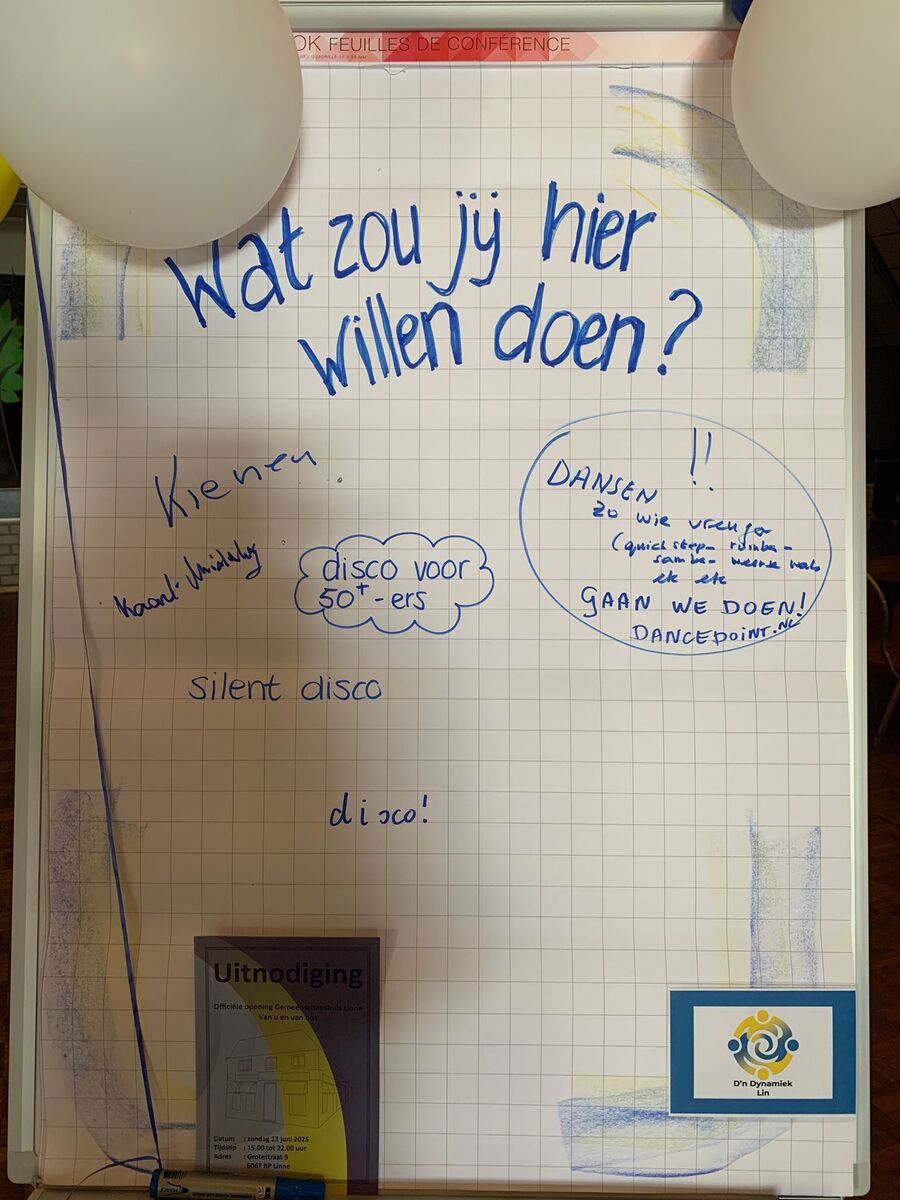 OK FEUILLES DE CONFÉRENCE
Wat zou jij hier
willen doen?
Kienen
!!
DANSEN
zo wie vreuger
(quickstep- rumba-
samba- weense wals
etc etc
GAAN WE DOEN!
DANCEPOINT.NL
Kaart-
disco voor
50+-ers
silent disco
disco!
Uitnodiging
Officiële opening Gemeenschapshuis Linne
Van u en van ons
Datum : zondag 22 juni 2025
Tijdstip : 15.00 tot 22.00 uur
Adres : Grotestraat 9
6067 BP Linne
D'n Dynamiek
Lin